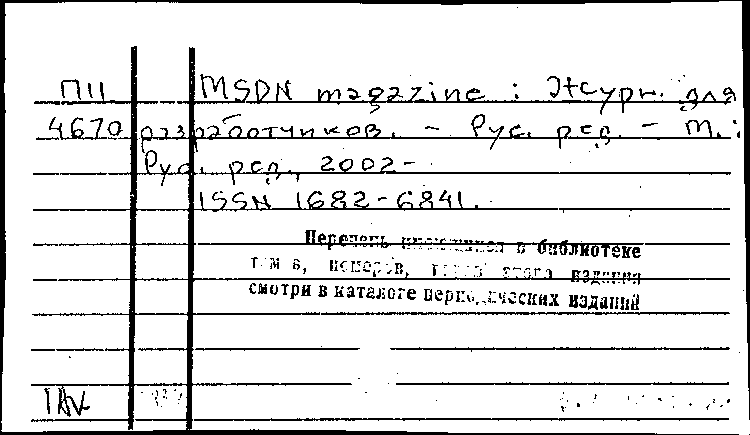 П11 MSDN magazine : Журн. для
4670 разработчиков. – Рус. ред. – М. :
Рус. ред., 2002-
ISSN 1682-6841.
Перечень имеющихся в библиотеке
томов, номеров, года этого издания
смотри в каталоге периодических изданий